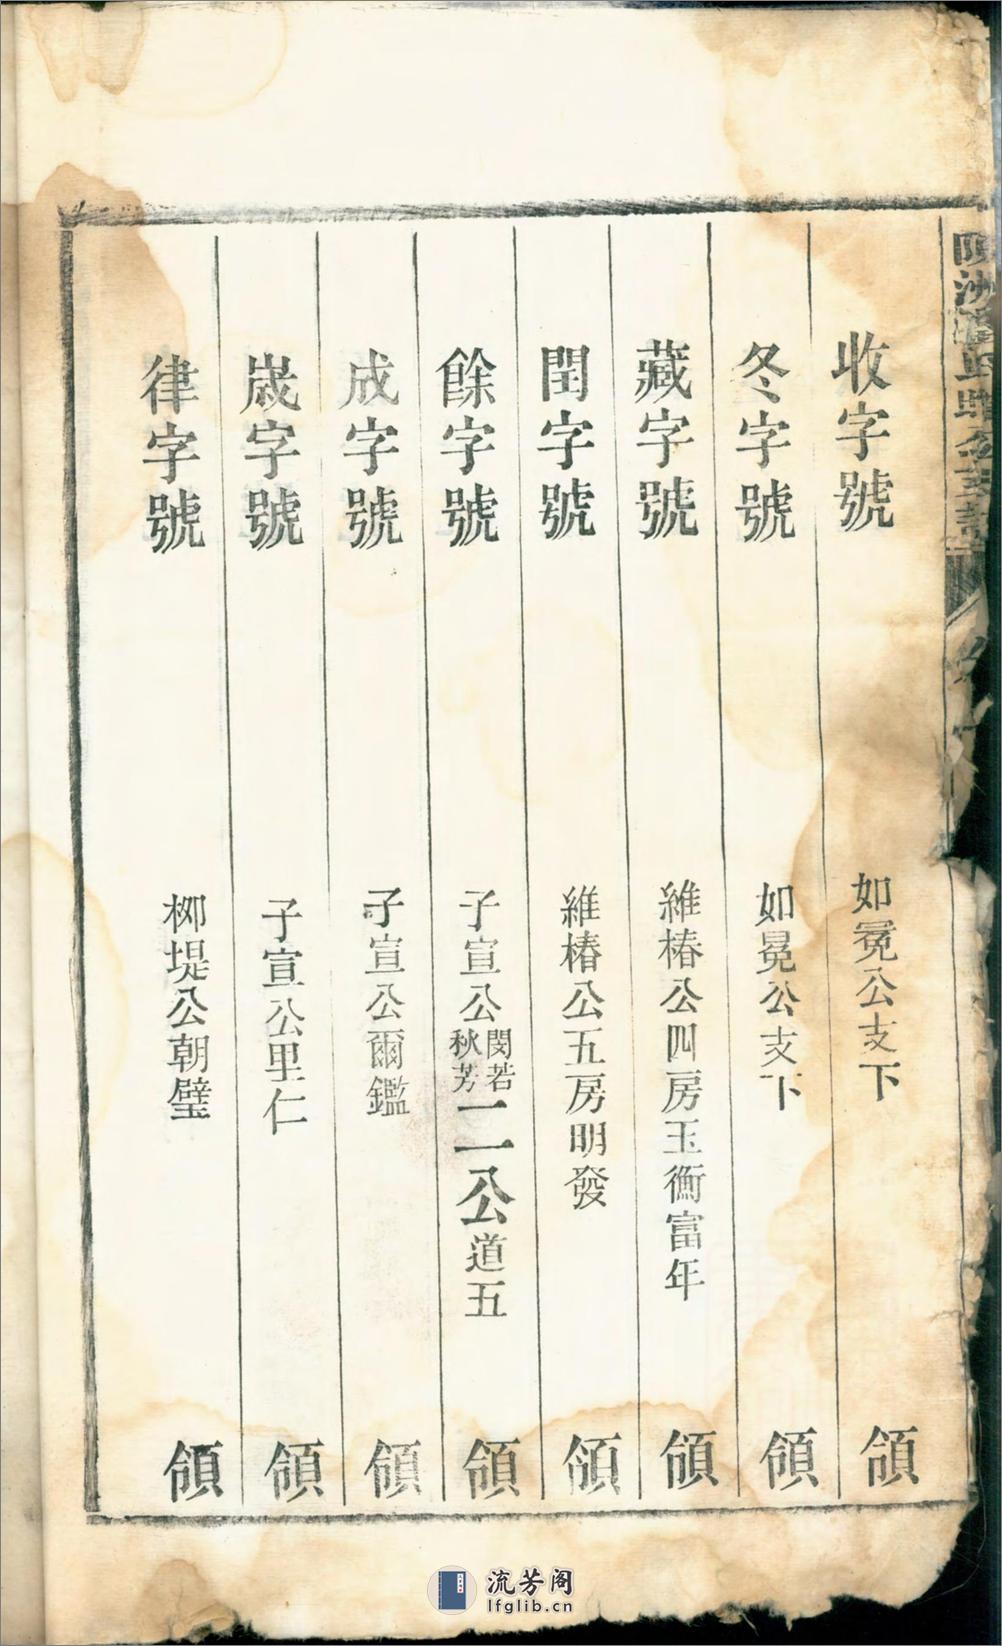 收字號 如冕公支下 領
冬字號 如冕公支下 領
藏字號 維椿公四房玉衡富年 領
閏字號 維椿公五房明發 領
餘字號 子宣公閔若秋芳二公道五 領
成字號 子宣公爾鑑 領
嵗字號 子宣公里仁 領
律字號 柳堤公朝璧 領
流芳阁
lfglib.cn